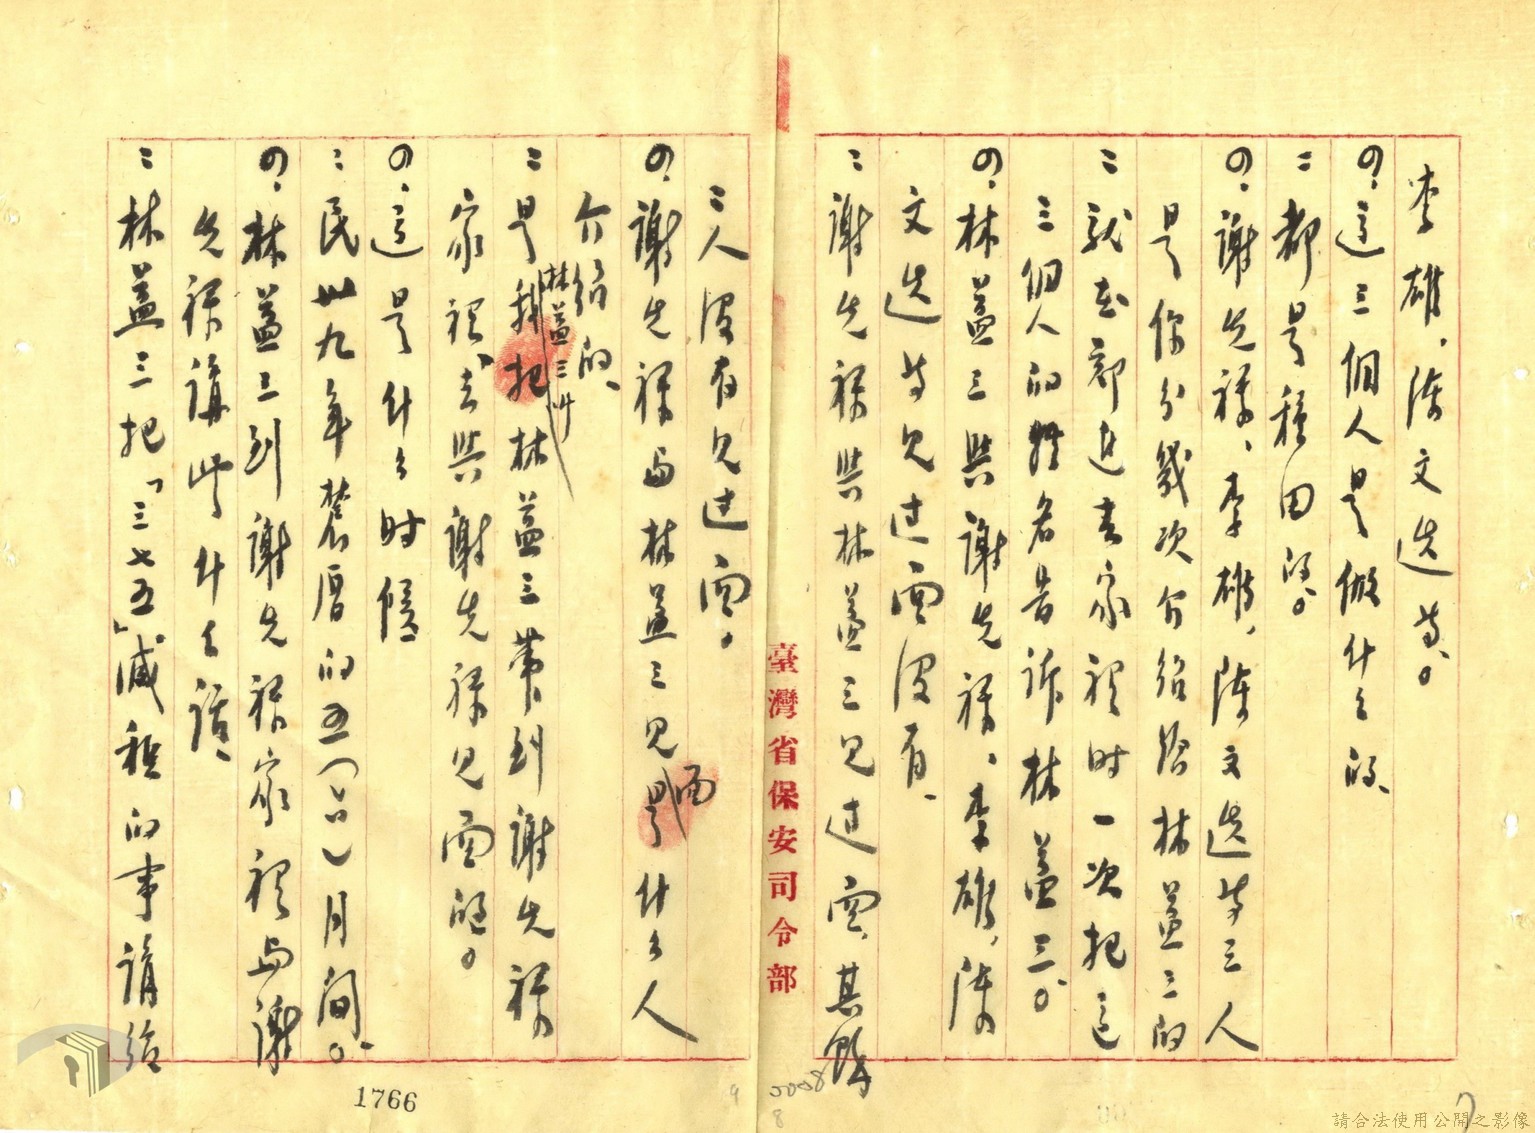 李雄、陳文逃等。
問、這三個人是做什么的、
答：都是種田的。
問、謝先祿、李雄、陳文逃等三人
是你分幾次介紹給林益三的
答：就在郭建吉家裡時一次把這
三個人的姓名告訴林益三。
問、林益三與謝先祿、李雄、陳
文逃等見过面沒有、
答：謝先祿與林益三見过面、其餘
三人沒有見过面。
問、謝先祿与林益三見面是什么人
介紹的、
答：是我把林益三帶到謝先祿
林益三叫
家裡、去與謝先祿見面的。
問、這是什么时候
答：民卅九年農曆的五（六）月間。
問、林益三到謝先祿家裡与謝
先祿講些什么話、
答：林益三把「三七五」減租的事講給
臺灣省保安司令部
1766
請合法使用公開之影像